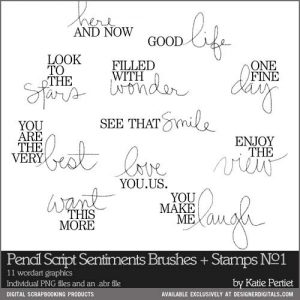 here
AND NOW
GOOD life
LOOK
TO
THE
stars
FILLED
WITH
wonder
ONE
FINE
day
SEE THAT smile
YOU
ARE
THE
VERY best
love
YOU.US.
ENJOY
THE
view
want
THIS
MORE
YOU
MAKE
ME laugh
Pencil Script Sentiments Brushes + Stamps No1
11 wordart graphics
Individual PNG files and an .abr file
by Katie Pertiet
DIGITAL SCRAPBOOKING PRODUCTS
AVAILABLE EXCLUSIVELY AT DESIGNERDIGITALS.COM